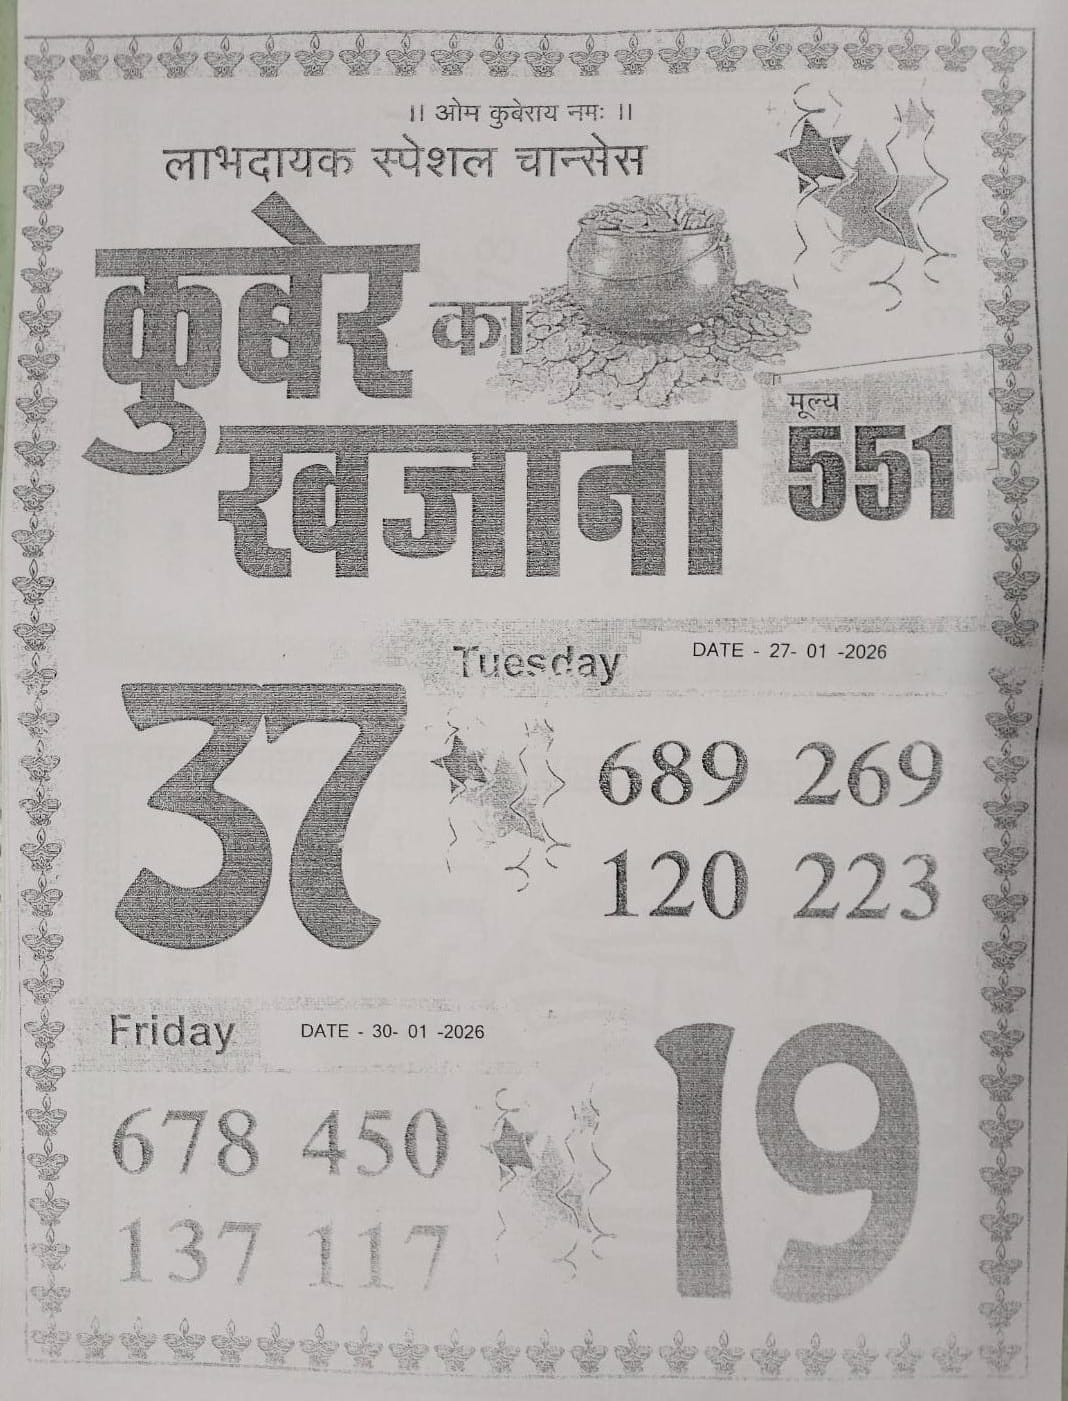 ।। ओम कुबेराय नमः ।।
लाभदायक स्पेशल चान्सेस
कुबेर का
खजाना
मूल्य
551
Tuesday DATE - 27- 01 -2026
37
689 269
120 223
Friday DATE - 30- 01 -2026
678 450
137 117
19